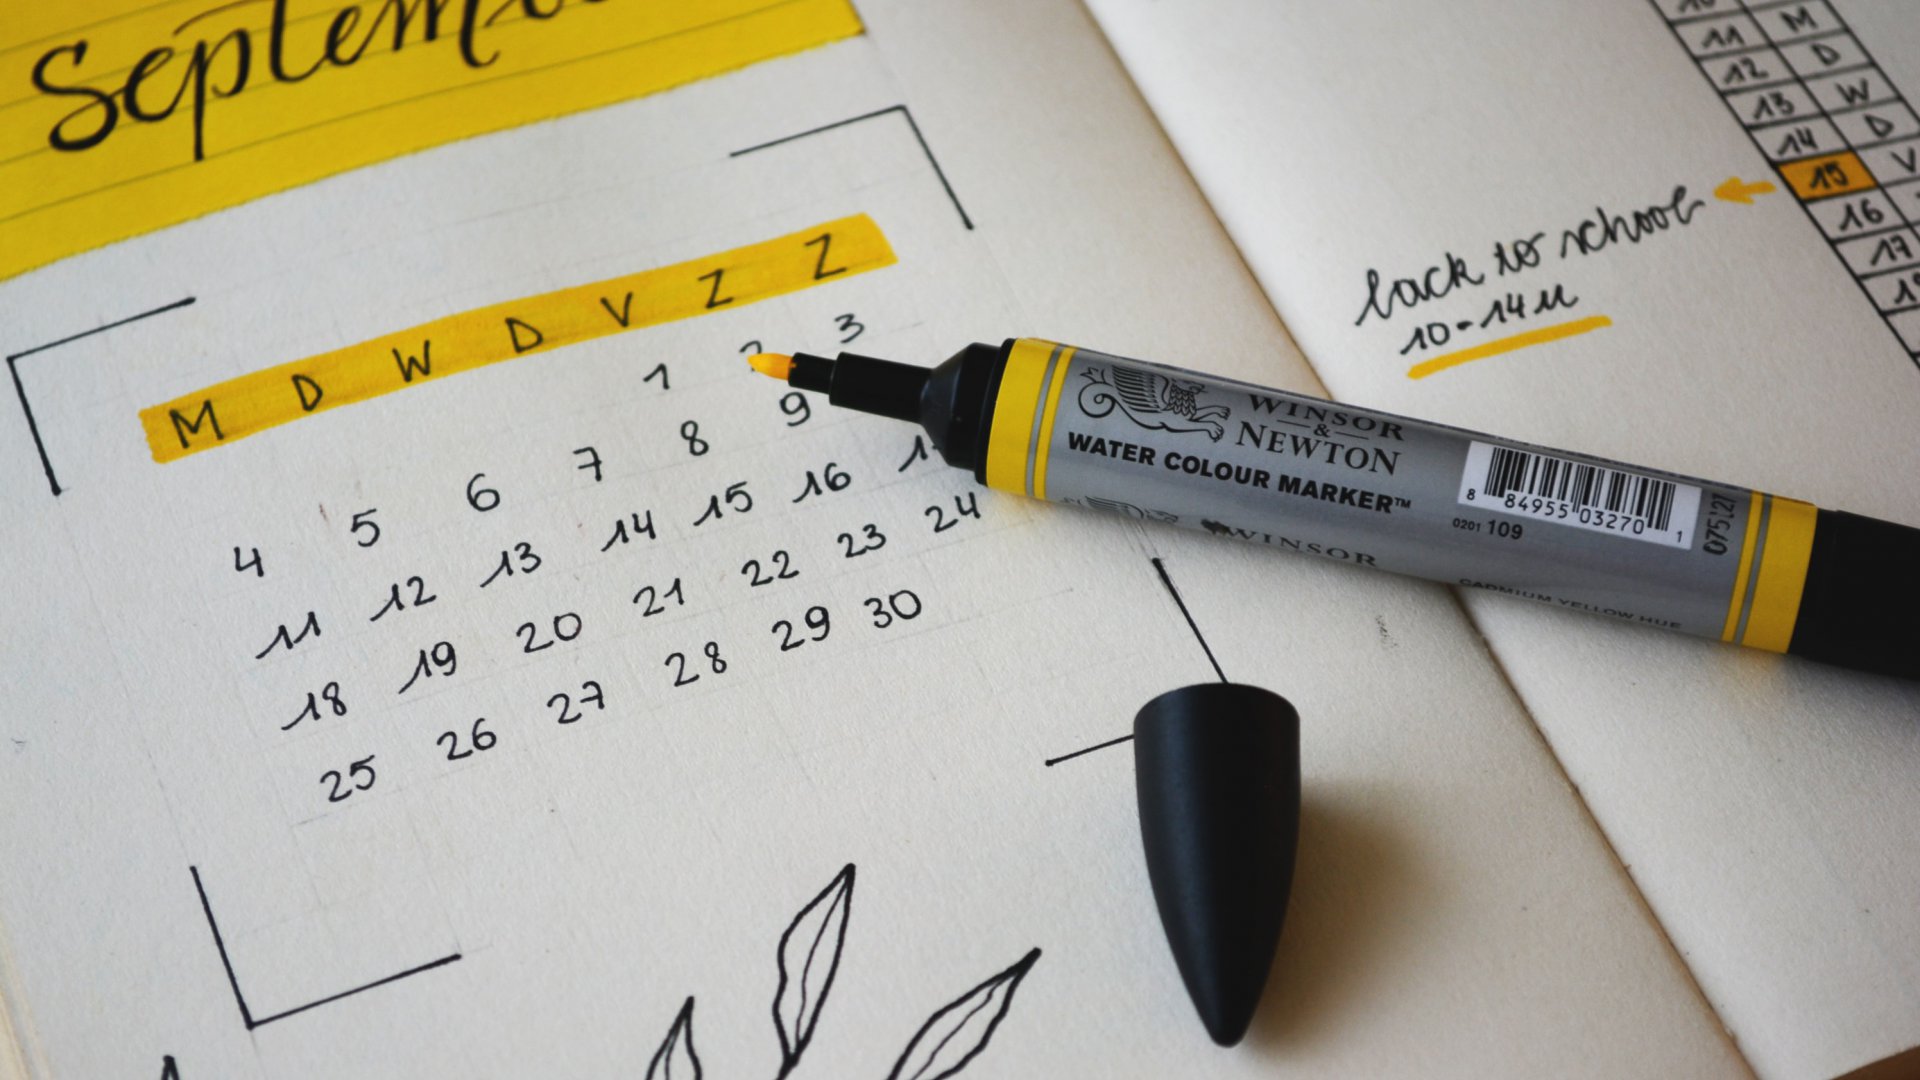 Septem
M D W D V Z Z
1 2 3
4 5 6 7 8 9
11 12 13 14 15 16
18 19 20 21 22 23 24
25 26 27 28 29 30
WINSOR
&
NEWTON
WATER COLOUR MARKER™
8 84955 03270 1
0201 109
075127
WINSOR
CADMIUM YELLOW HUE
10
11 M
12 D
13 W
14 D
15 V
16
17
back to school
10-14u